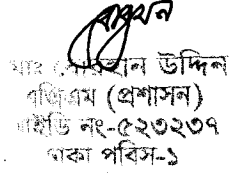 উদ্দিন
এজিএম (প্রশাসন)
আইডি নং-৫২৩২৩৭
ঢাকা পবিস-১